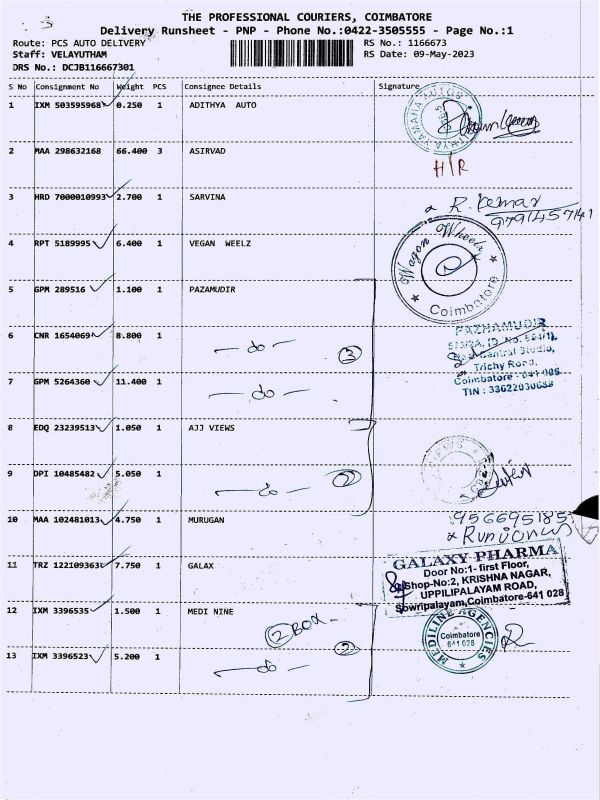 THE PROFESSIONAL COURIERS, COIMBATORE
Delivery Runsheet - PNP - Phone No.:0422-3505555 - Page No.:1
Route: PCS AUTO DELIVERY RS No.: 1166673
Staff: VELAYUTHAM RS Date: 09-May-2023
DRS No.: DCJB116667301
S No Consignment No Weight PCS Consignee Details Signature
1 IXM 503595968 0.250 1 ADITHYA AUTO
2 MAA 298632168 66.400 3 ASIRVAD
H/R
3 HRD 7000010993 2.700 1 SARVINA
R. Kumar
9791457141
4 RPT 5189995 6.400 1 VEGAN WEELZ
Wagon Wheelz
Coimbatore
5 GPM 289516 1.100 1 PAZAMUDIR
6 CNR 1654069 8.800 1
PAZHAMUDIR
— do — 3
Central Studio,
Trichy Road,
7 GPM 5264360 11.400 1
Coimbatore - 641 005
TIN : 33622030688
— do —
8 EDQ 23239513 1.050 1 AJJ VIEWS
9 DPI 10485482 5.050 1
— do — 2
10 MAA 102481013 4.750 1 MURUGAN
9566695185
11 TRZ 122109363 7.750 1 GALAX
GALAXY PHARMA
Door No:1- first Floor,
Shop-No:2, KRISHNA NAGAR,
UPPILIPALAYAM ROAD,
Sowripalayam,Coimbatore-641 028
12 IXM 3396535 1.500 1 MEDI NINE
2 BOX
MEDILINE AGENCIES
Coimbatore
641 028
13 IXM 3396523 5.200 1
— do — 2